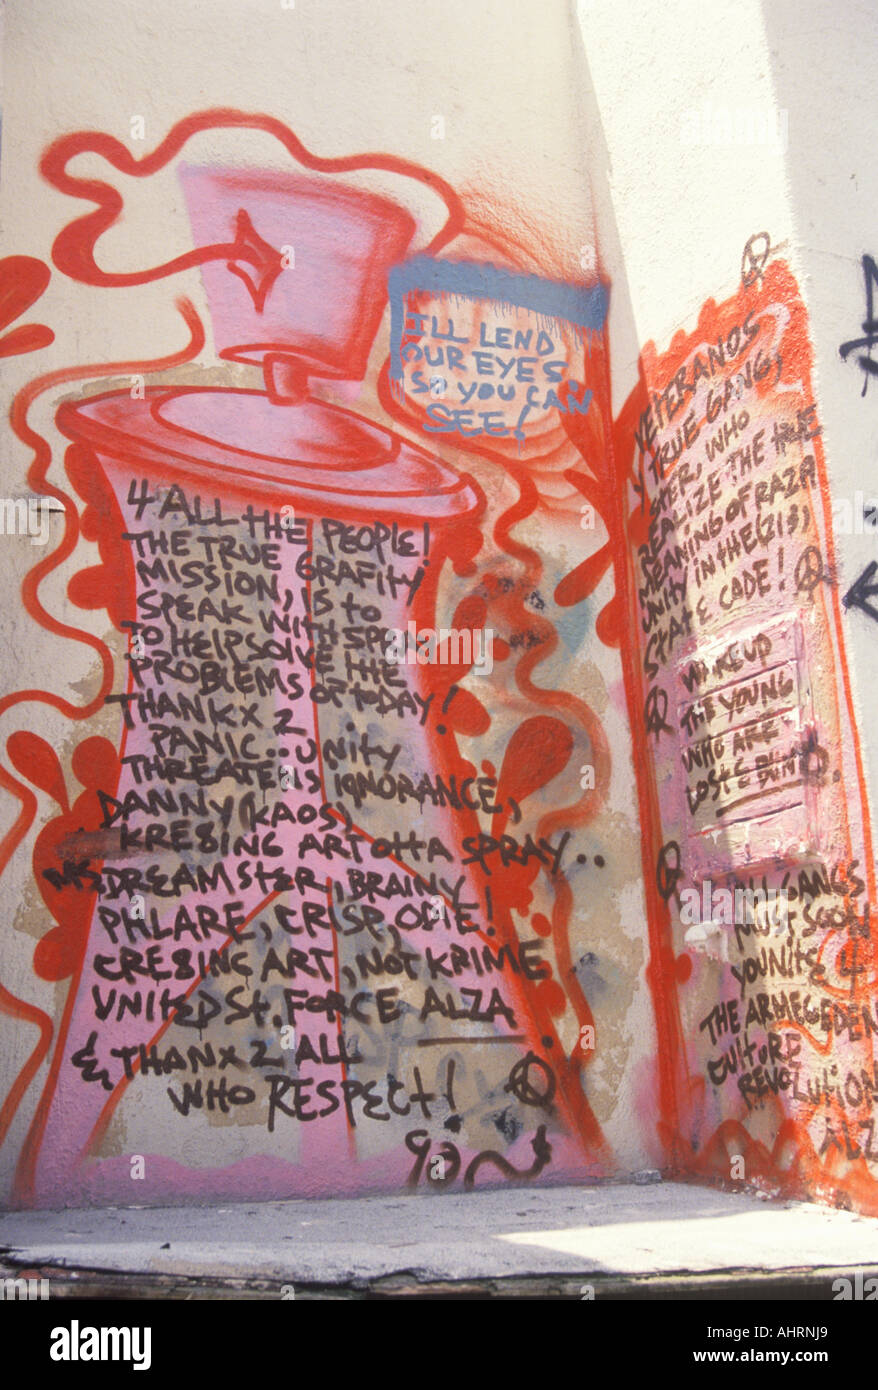 I'LL LEND
OUR EYES
SO YOU CAN
SEE!
4 ALL THE PEOPLE!
THE TRUE GRAFITY
MISSION, IS TO
SPEAK WITH SPRAY
TO HELP SOLVE THE
PROBLEMS OF TODAY!
THANKX 2
PANIC.. UNITY
THREATENS IGNORANCE,
DANNY (KAOS)
KRE8ING ART OTTA SPRAY..
DREAMSTER, BRAINY
PHLARE, CRISP, ODIE!
CRE8ING ART, NOT KRIME
UNITED ST. FORCE ALZA
& THANX 2 ALL
WHO RESPECT!
90
VETERANOS
Y TRUE GANG
STER, WHO
REALIZE THE TRUE
MEANING OF RAZA
UNITY IN THE (213)
STATE CADE!
WAKE UP
THE YOUNG
WHO ARE
LOST & BLIND
ALL GANGS
MUST SOON
YOUNITE 4
THE ARMEGEDEN
CULTURE
REVOLUTION
ALZ
alamy
Image ID: AHRNJ9
www.alamy.com